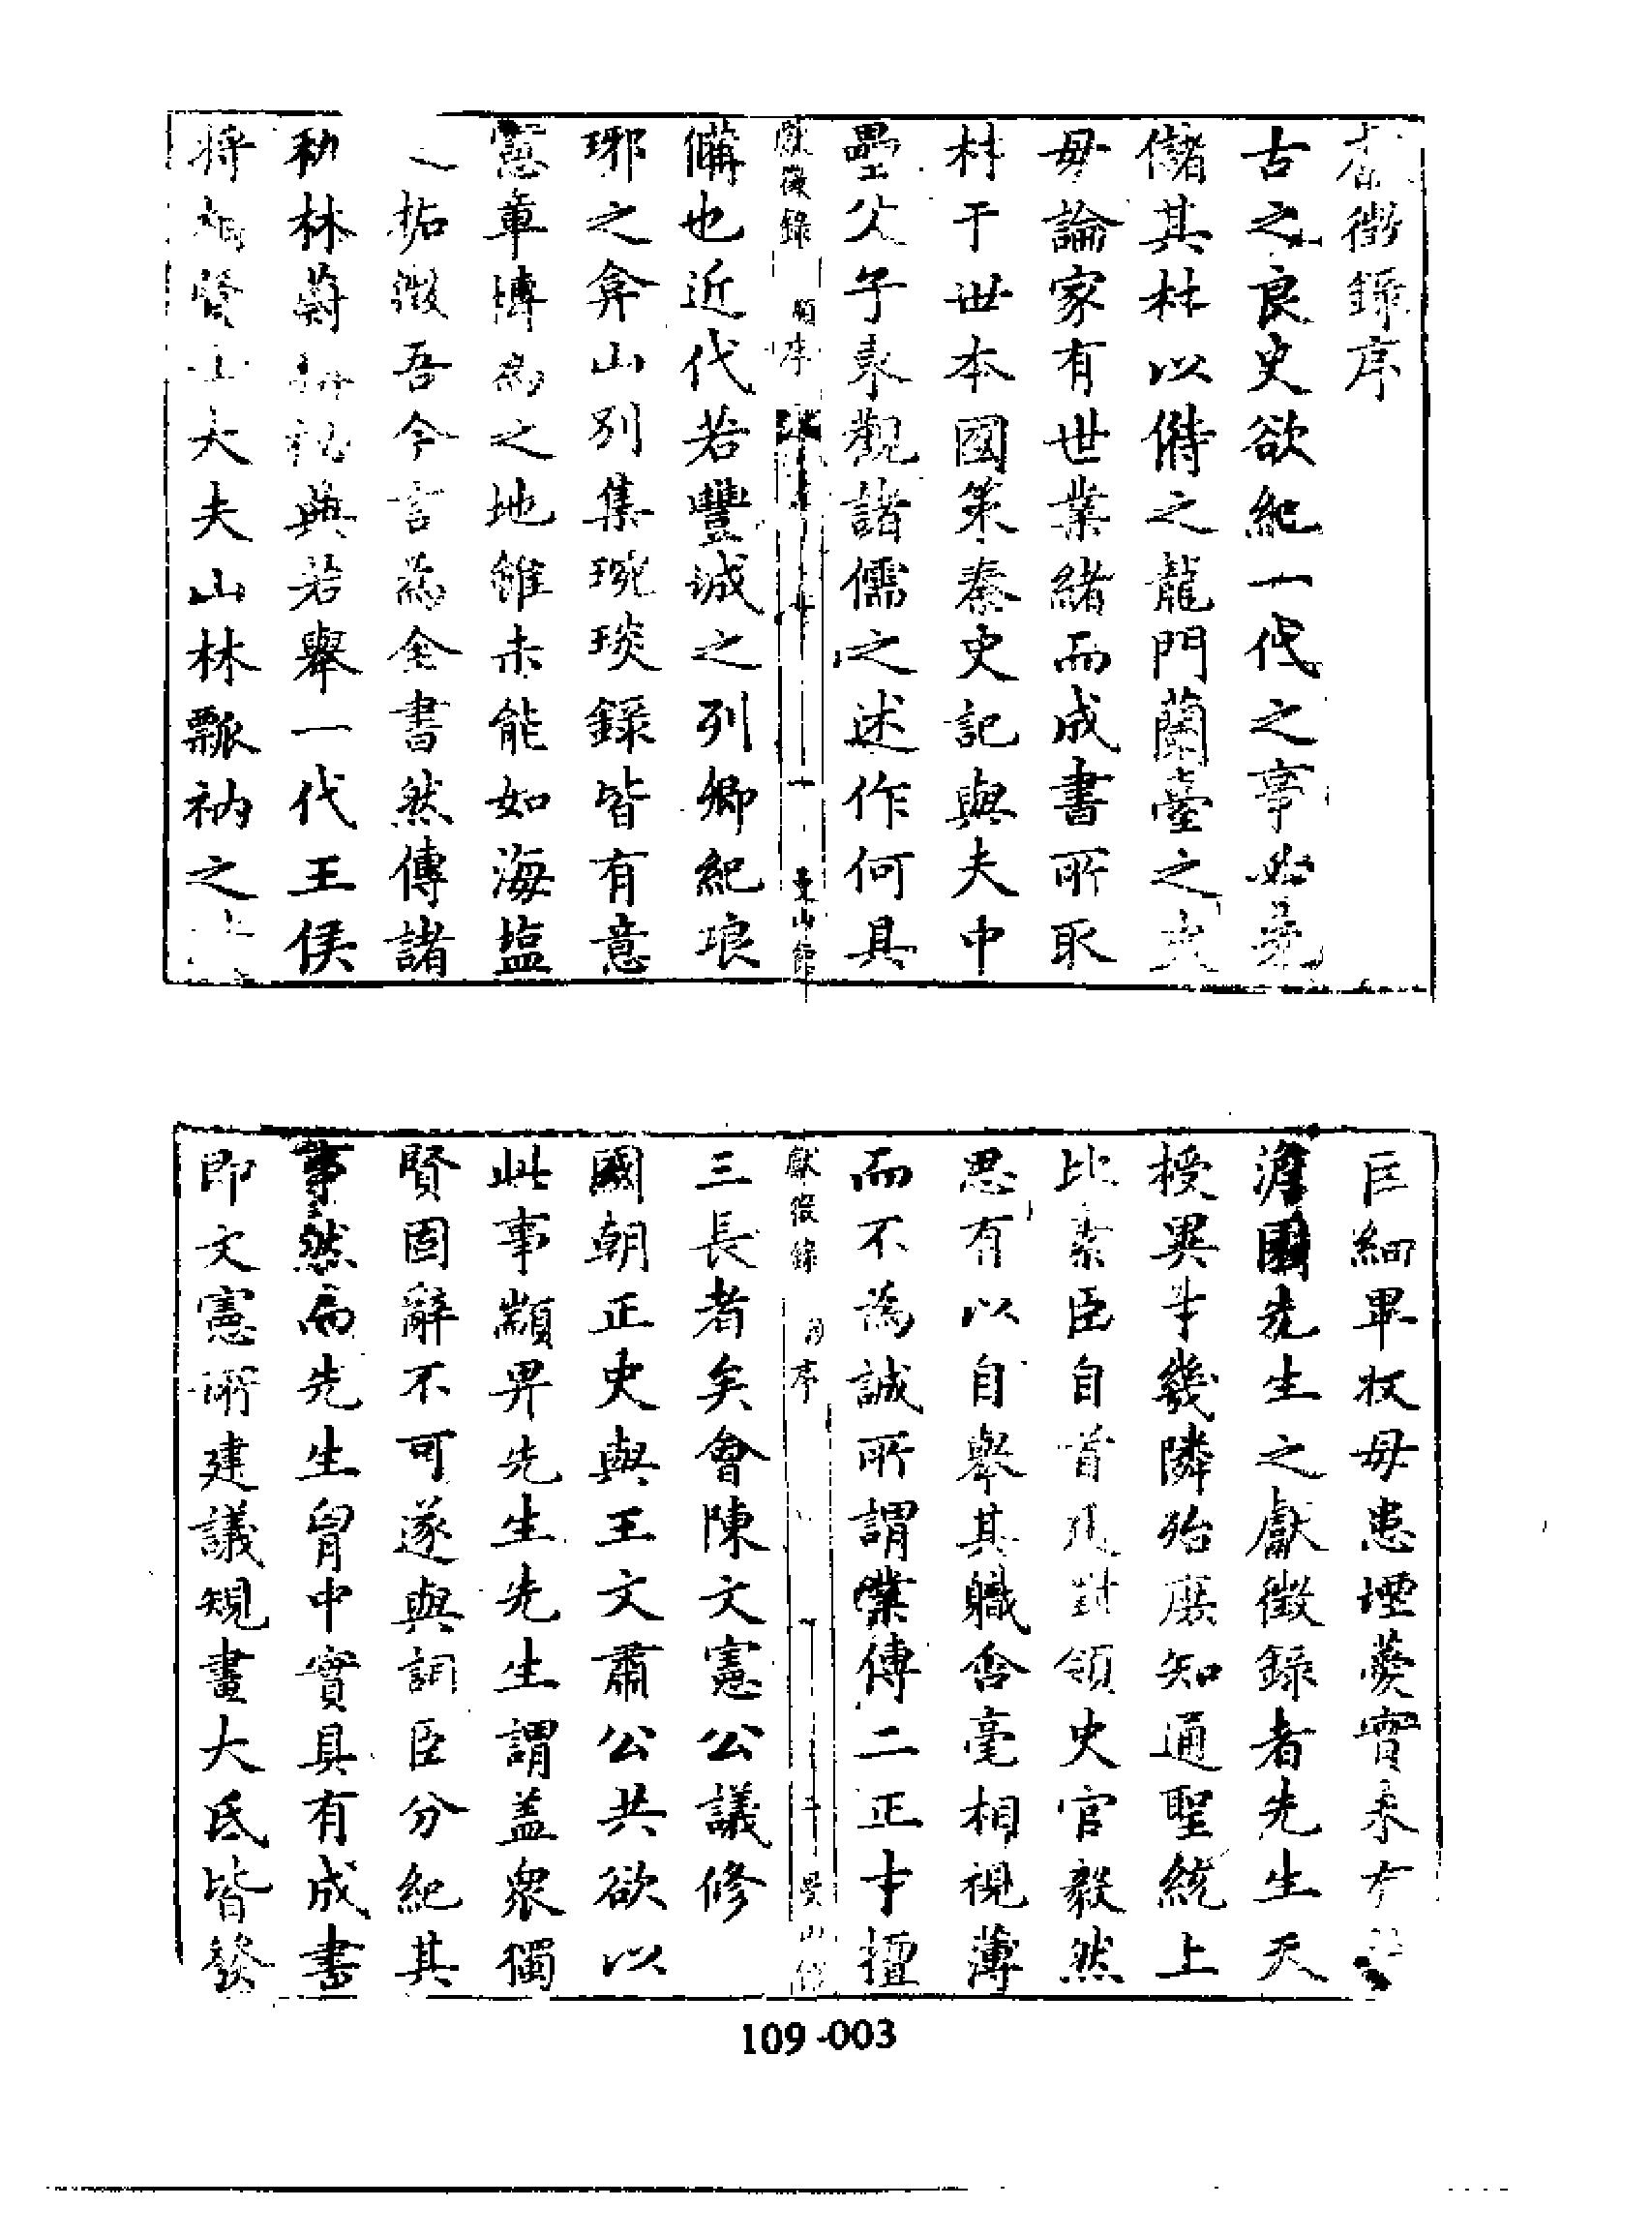 徵錄序
古之良史欲紀一代之事必先
儲其材以俻之龍門蘭臺之史
毋論家有世業緒而成書所取
材于世本國策秦史記與夫中
壘父子東觀諸儒之述作何具
獻徵錄 顧序 一 曼山館
備也近代若豐城之列卿紀琅
琊之弇山別集琬琰錄皆有意
憲章博為之地雖未能如海塩
之拓徵吾今言為全書然傳諸
秇林蔚 祕典若舉一代王侯
將相賢士大夫山林瓢衲之
巨細畢收毋患堙薆實未有
澹園先生之獻徵錄者先生天
授異才幾隣殆庶知通聖統上
比素臣自首廷對領史官毅然
思有以自舉其職含毫相視薄
而不為誠所謂業傳二正才擅
獻徵錄 序 二 曼山館
三長者矣會陳文憲公議修
國朝正史與王文肅公共欲以
此事顓畀先生先生謂盖眾獨
賢固辭不可遂與詞臣分紀其
事然而先生胷中實具有成書
即文憲所建議規畫大氐皆發
109-003